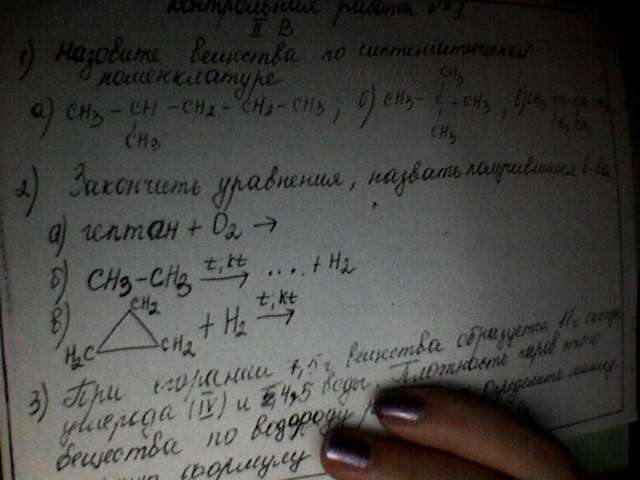 контрольная работа №1
II В
1) Назовите вещества по систематической
номенклатуре
а) CH3 - CH - CH2 - CH2 - CH3 ; б) CH3 - C - CH3 , в) CH3 - CH - CH - CH3
CH3
CH3
CH3
CH3 CH3
2) Закончить уравнения, назвать получившиеся в-ва
а) гептан + O2 →
б) CH3-CH3 t, kt → .... + H2
в) H2C CH2 CH2 + H2 t, kt →
3) При сгорании 7,5г вещества образуется 11г оксида
углерода (IV) и 4,5 воды. Плотность паров этого
вещества по водороду Определите
формулу